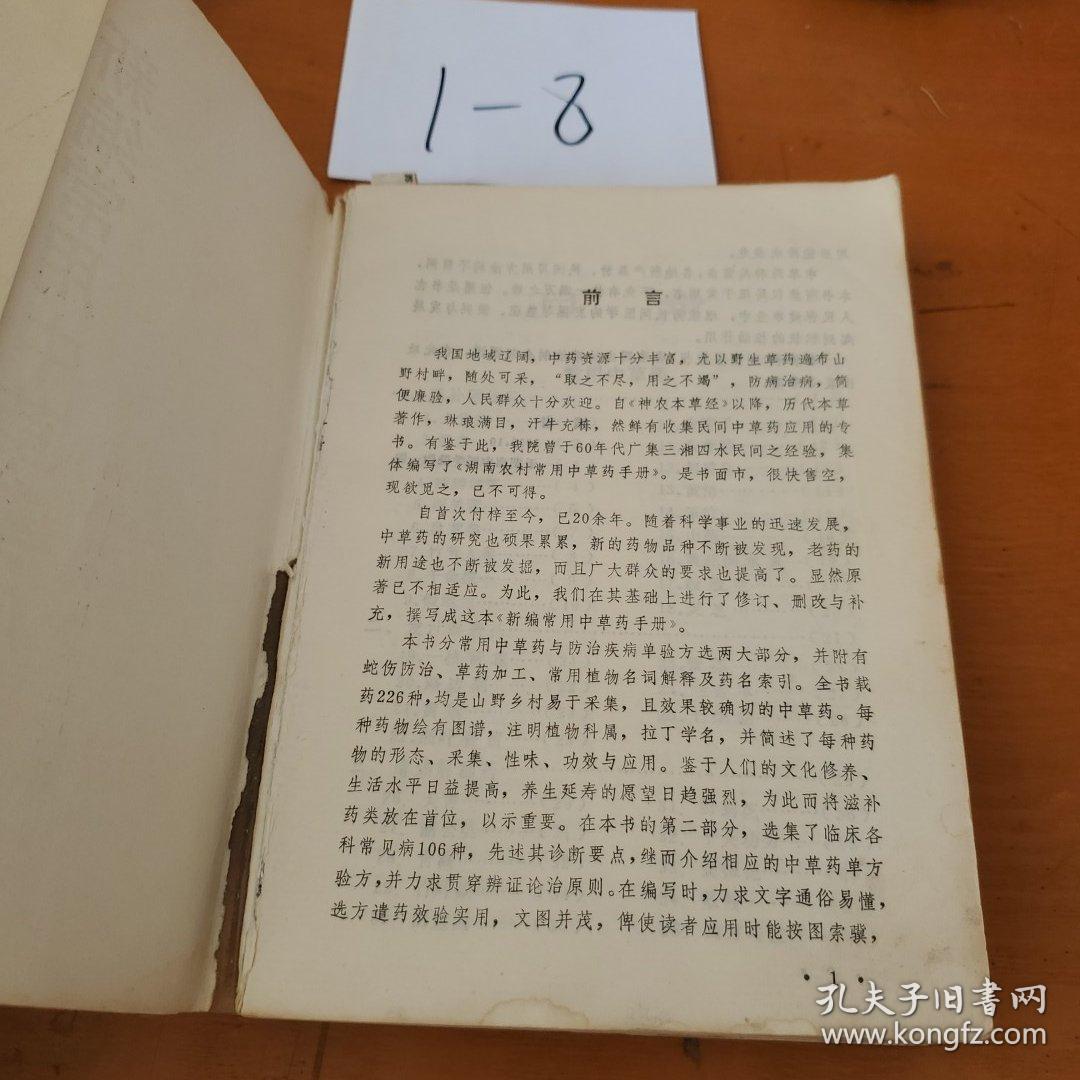 1-8
前言
我国地域辽阔，中药资源十分丰富，尤以野生草药遍布山
野村畔，随处可采，“取之不尽，用之不竭”，防病治病，简
便廉验，人民群众十分欢迎。自《神农本草经》以降，历代本草
著作，琳琅满目，汗牛充栋，然鲜有收集民间中草药应用的专
书。有鉴于此，我院曾于60年代广集三湘四水民间之经验，集
体编写了《湖南农村常用中草药手册》。是书面市，很快售空，
现欲觅之，已不可得。
自首次付梓至今，已20余年。随着科学事业的迅速发展，
中草药的研究也硕果累累，新的药物品种不断被发现，老药的
新用途也不断被发掘，而且广大群众的要求也提高了。显然原
著已不相适应。为此，我们在其基础上进行了修订、删改与补
充，撰写成这本《新编常用中草药手册》。
本书分常用中草药与防治疾病单验方选两大部分，并附有
蛇伤防治、草药加工、常用植物名词解释及药名索引。全书载
药226种，均是山野乡村易于采集，且效果较确切的中草药。每
种药物绘有图谱，注明植物科属，拉丁学名，并简述了每种药
物的形态、采集、性味、功效与应用。鉴于人们的文化修养、
生活水平日益提高，养生延寿的愿望日趋强烈，为此而将滋补
药类放在首位，以示重要。在本书的第二部分，选集了临床各
科常见病106种，先述其诊断要点，继而介绍相应的中草药单方
验方，并力求贯穿辨证论治原则。在编写时，力求文字通俗易懂，
选方遣药效验实用，文图并茂，俾使读者应用时能按图索骥，
• 1 •
孔夫子旧书网
www.kongfz.com